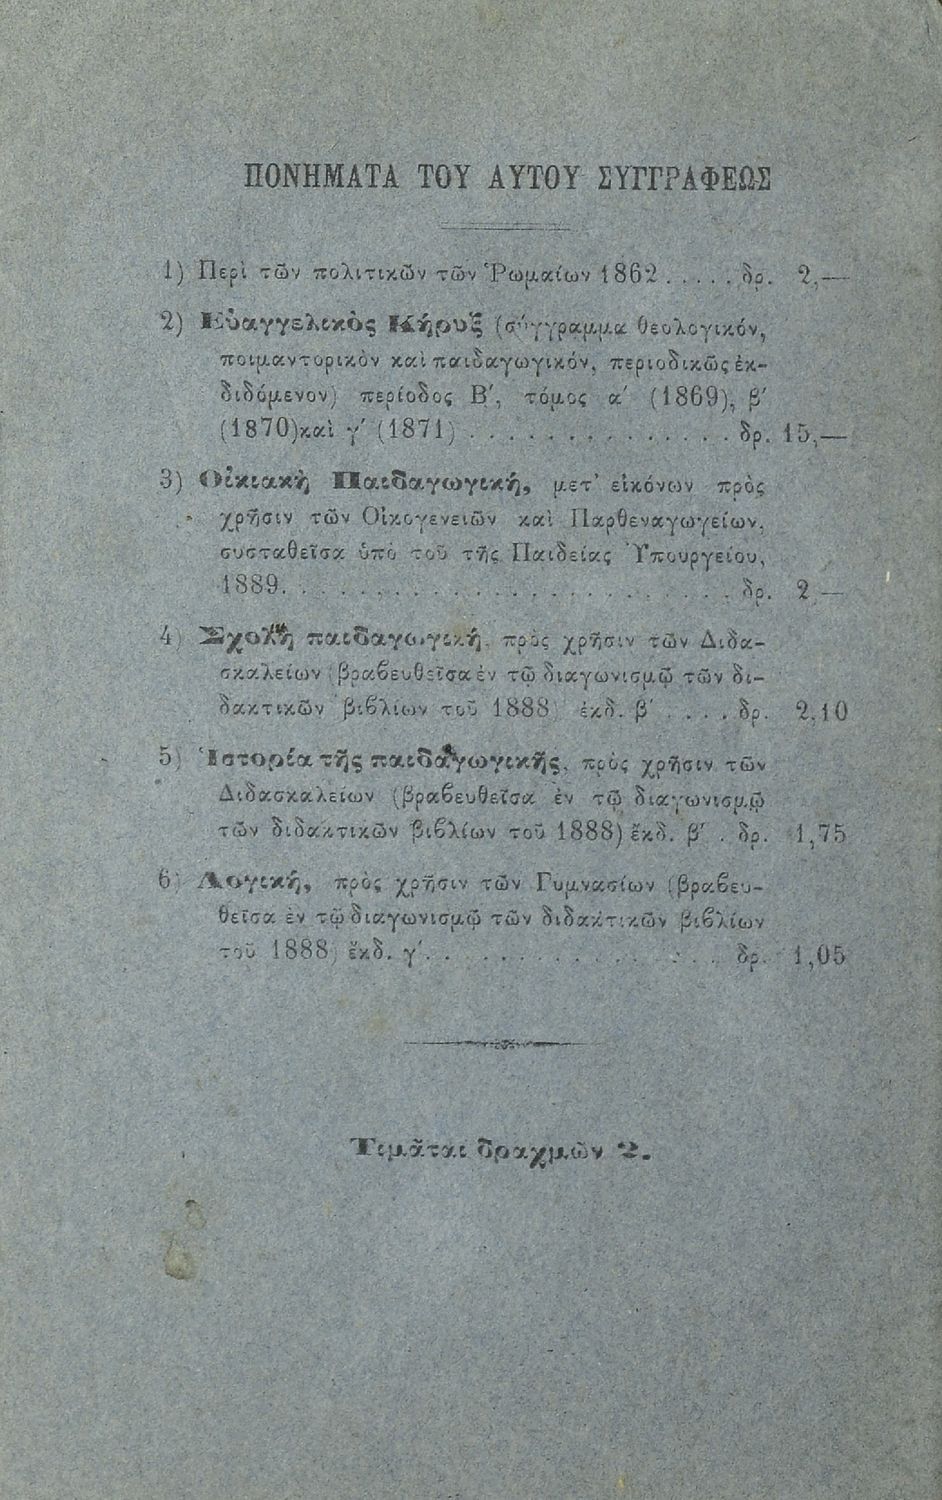 ΠΟΝΗΜΑΤΑ ΤΟΥ ΑΥΤΟΥ ΣΥΓΓΡΑΦΕΩΣ
1) Περὶ τῶν πολιτικῶν τῶν Ῥωμαίων 1862 . . . . . δρ. 2,—
2) Εὐαγγελικὸς Κήρυξ (σύγγραμμα θεολογικόν,
ποιμαντορικὸν καὶ παιδαγωγικόν, περιοδικῶς ἐκ-
διδόμενον) περίοδος Β΄, τόμος α΄ (1869), β΄
(1870) καὶ γ΄ (1871) . . . . . . . . . . . . . . δρ. 15,—
3) Οἰκιακὴ Παιδαγωγική, μετ᾽ εἰκόνων πρὸς
χρῆσιν τῶν Οἰκογενειῶν καὶ Παρθεναγωγείων,
συσταθεῖσα ὑπὸ τοῦ τῆς Παιδείας Ὑπουργείου,
1889. . . . . . . . . . . . . . . . . . . . . . . δρ. 2 —
4) Σχολὴ παιδαγωγική, πρὸς χρῆσιν τῶν Διδα-
σκαλείων (βραϐευθεῖσα ἐν τῷ διαγωνισμῷ τῶν δι-
δακτικῶν βιϐλίων τοῦ 1888) ἐκδ. β΄ . . . . δρ. 2,10
5) Ἱστορία τῆς παιδαγωγικῆς, πρὸς χρῆσιν τῶν
Διδασκαλείων (βραϐευθεῖσα ἐν τῷ διαγωνισμῷ
τῶν διδακτικῶν βιϐλίων τοῦ 1888) ἔκδ. β΄ . δρ. 1,75
6) Λογική, πρὸς χρῆσιν τῶν Γυμνασίων (βραϐευ-
θεῖσα ἐν τῷ διαγωνισμῷ τῶν διδακτικῶν βιϐλίων
τοῦ 1888) ἔκδ. γ΄. . . . . . . . . . . . . . . . δρ. 1,05
Τιμᾶται δραχμῶν 2.